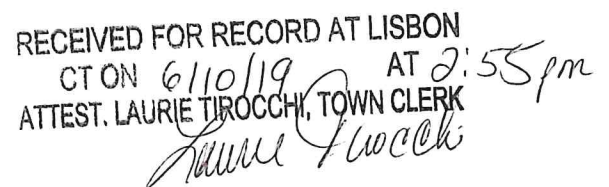 RECEIVED FOR RECORD AT LISBON
CT ON 6/10/19 AT 2:55 pm
ATTEST. LAURIE TIROCCHI, TOWN CLERK
Laurie Tirocchi